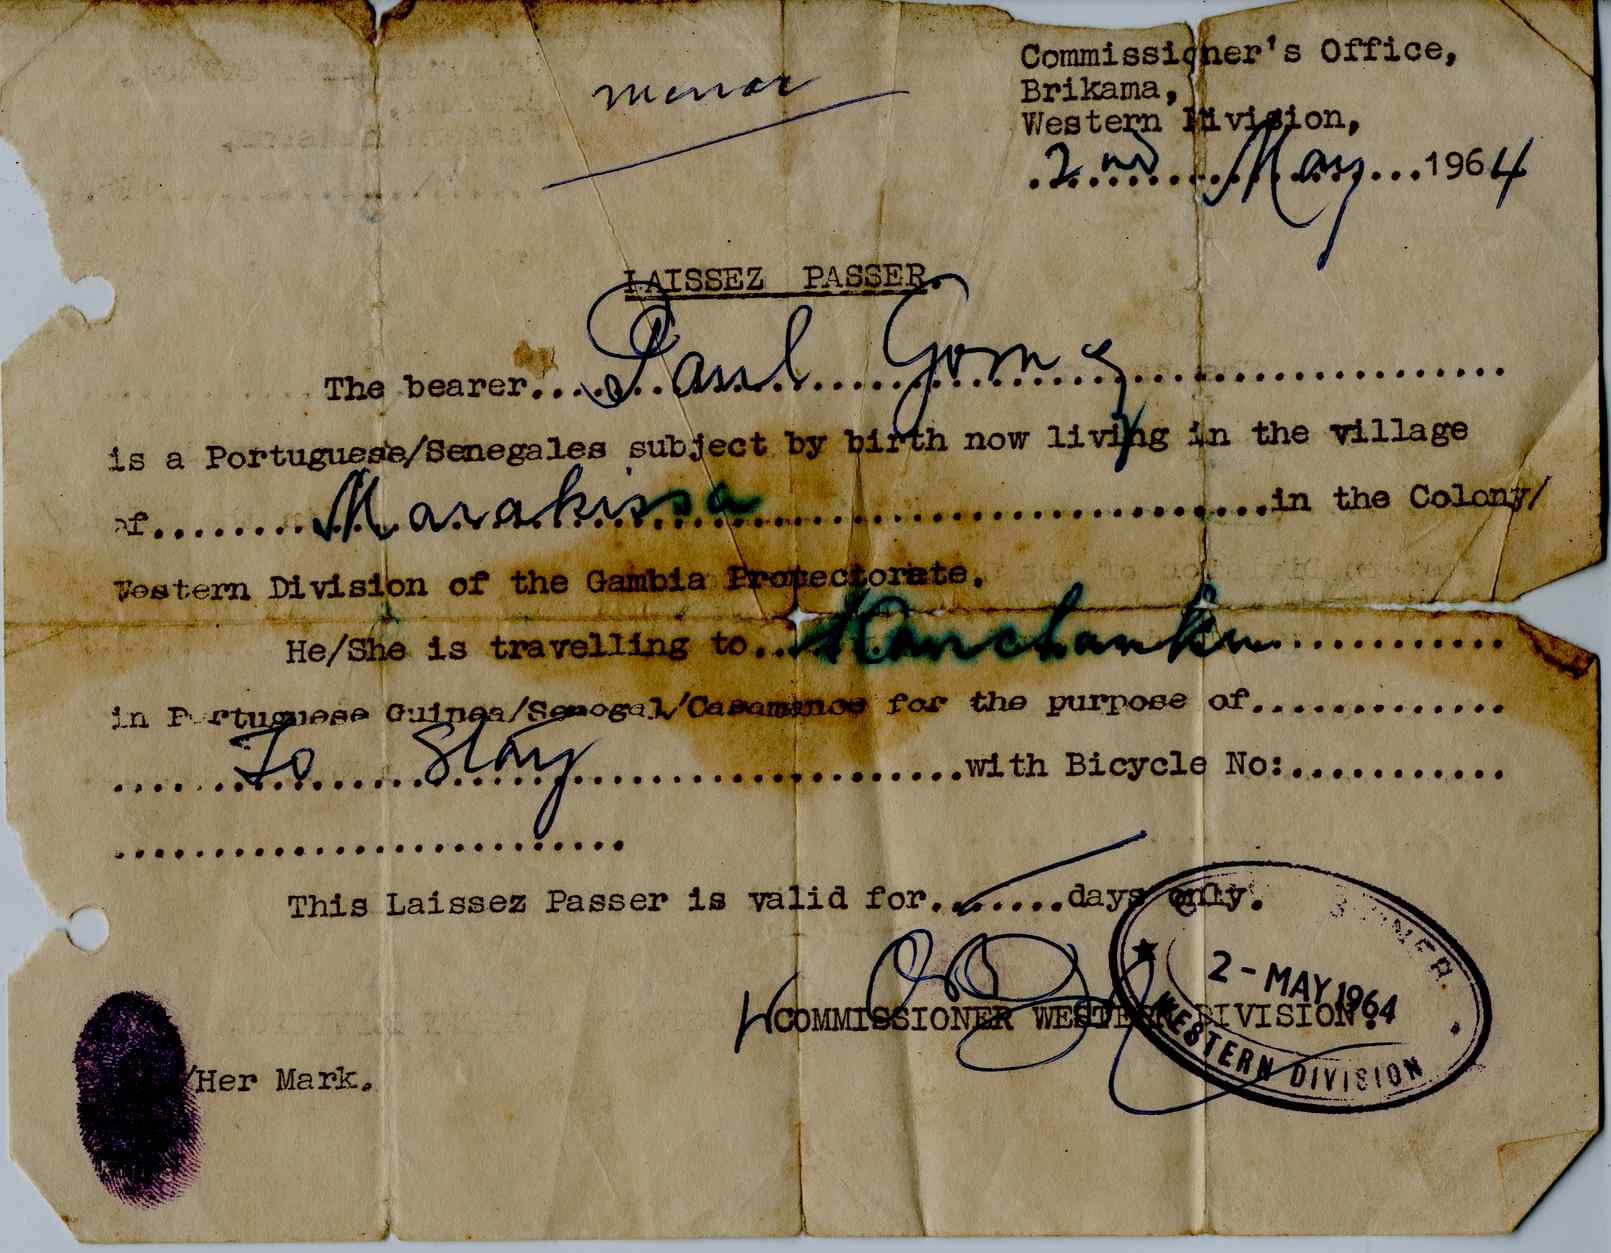 Commissioner's Office,
Brikama,
Western Division,
2nd May 1964
LAISSEZ PASSER.
The bearer....Paul Gomez....
is a Portuguese/Senegales subject by birth now living in the village
of........Marakissa........in the Colony/
Western Division of the Gambia Protectorate.
He/She is travelling to...............
in Portuguese Guinea/Senegal/Casamance for the purpose of.............
......To Stay......with Bicycle No:...........
...........................
This Laissez Passer is valid for.......days only.
COMMISSIONER WESTERN DIVISION.
2 - MAY 1964
WESTERN DIVISION
/Her Mark.